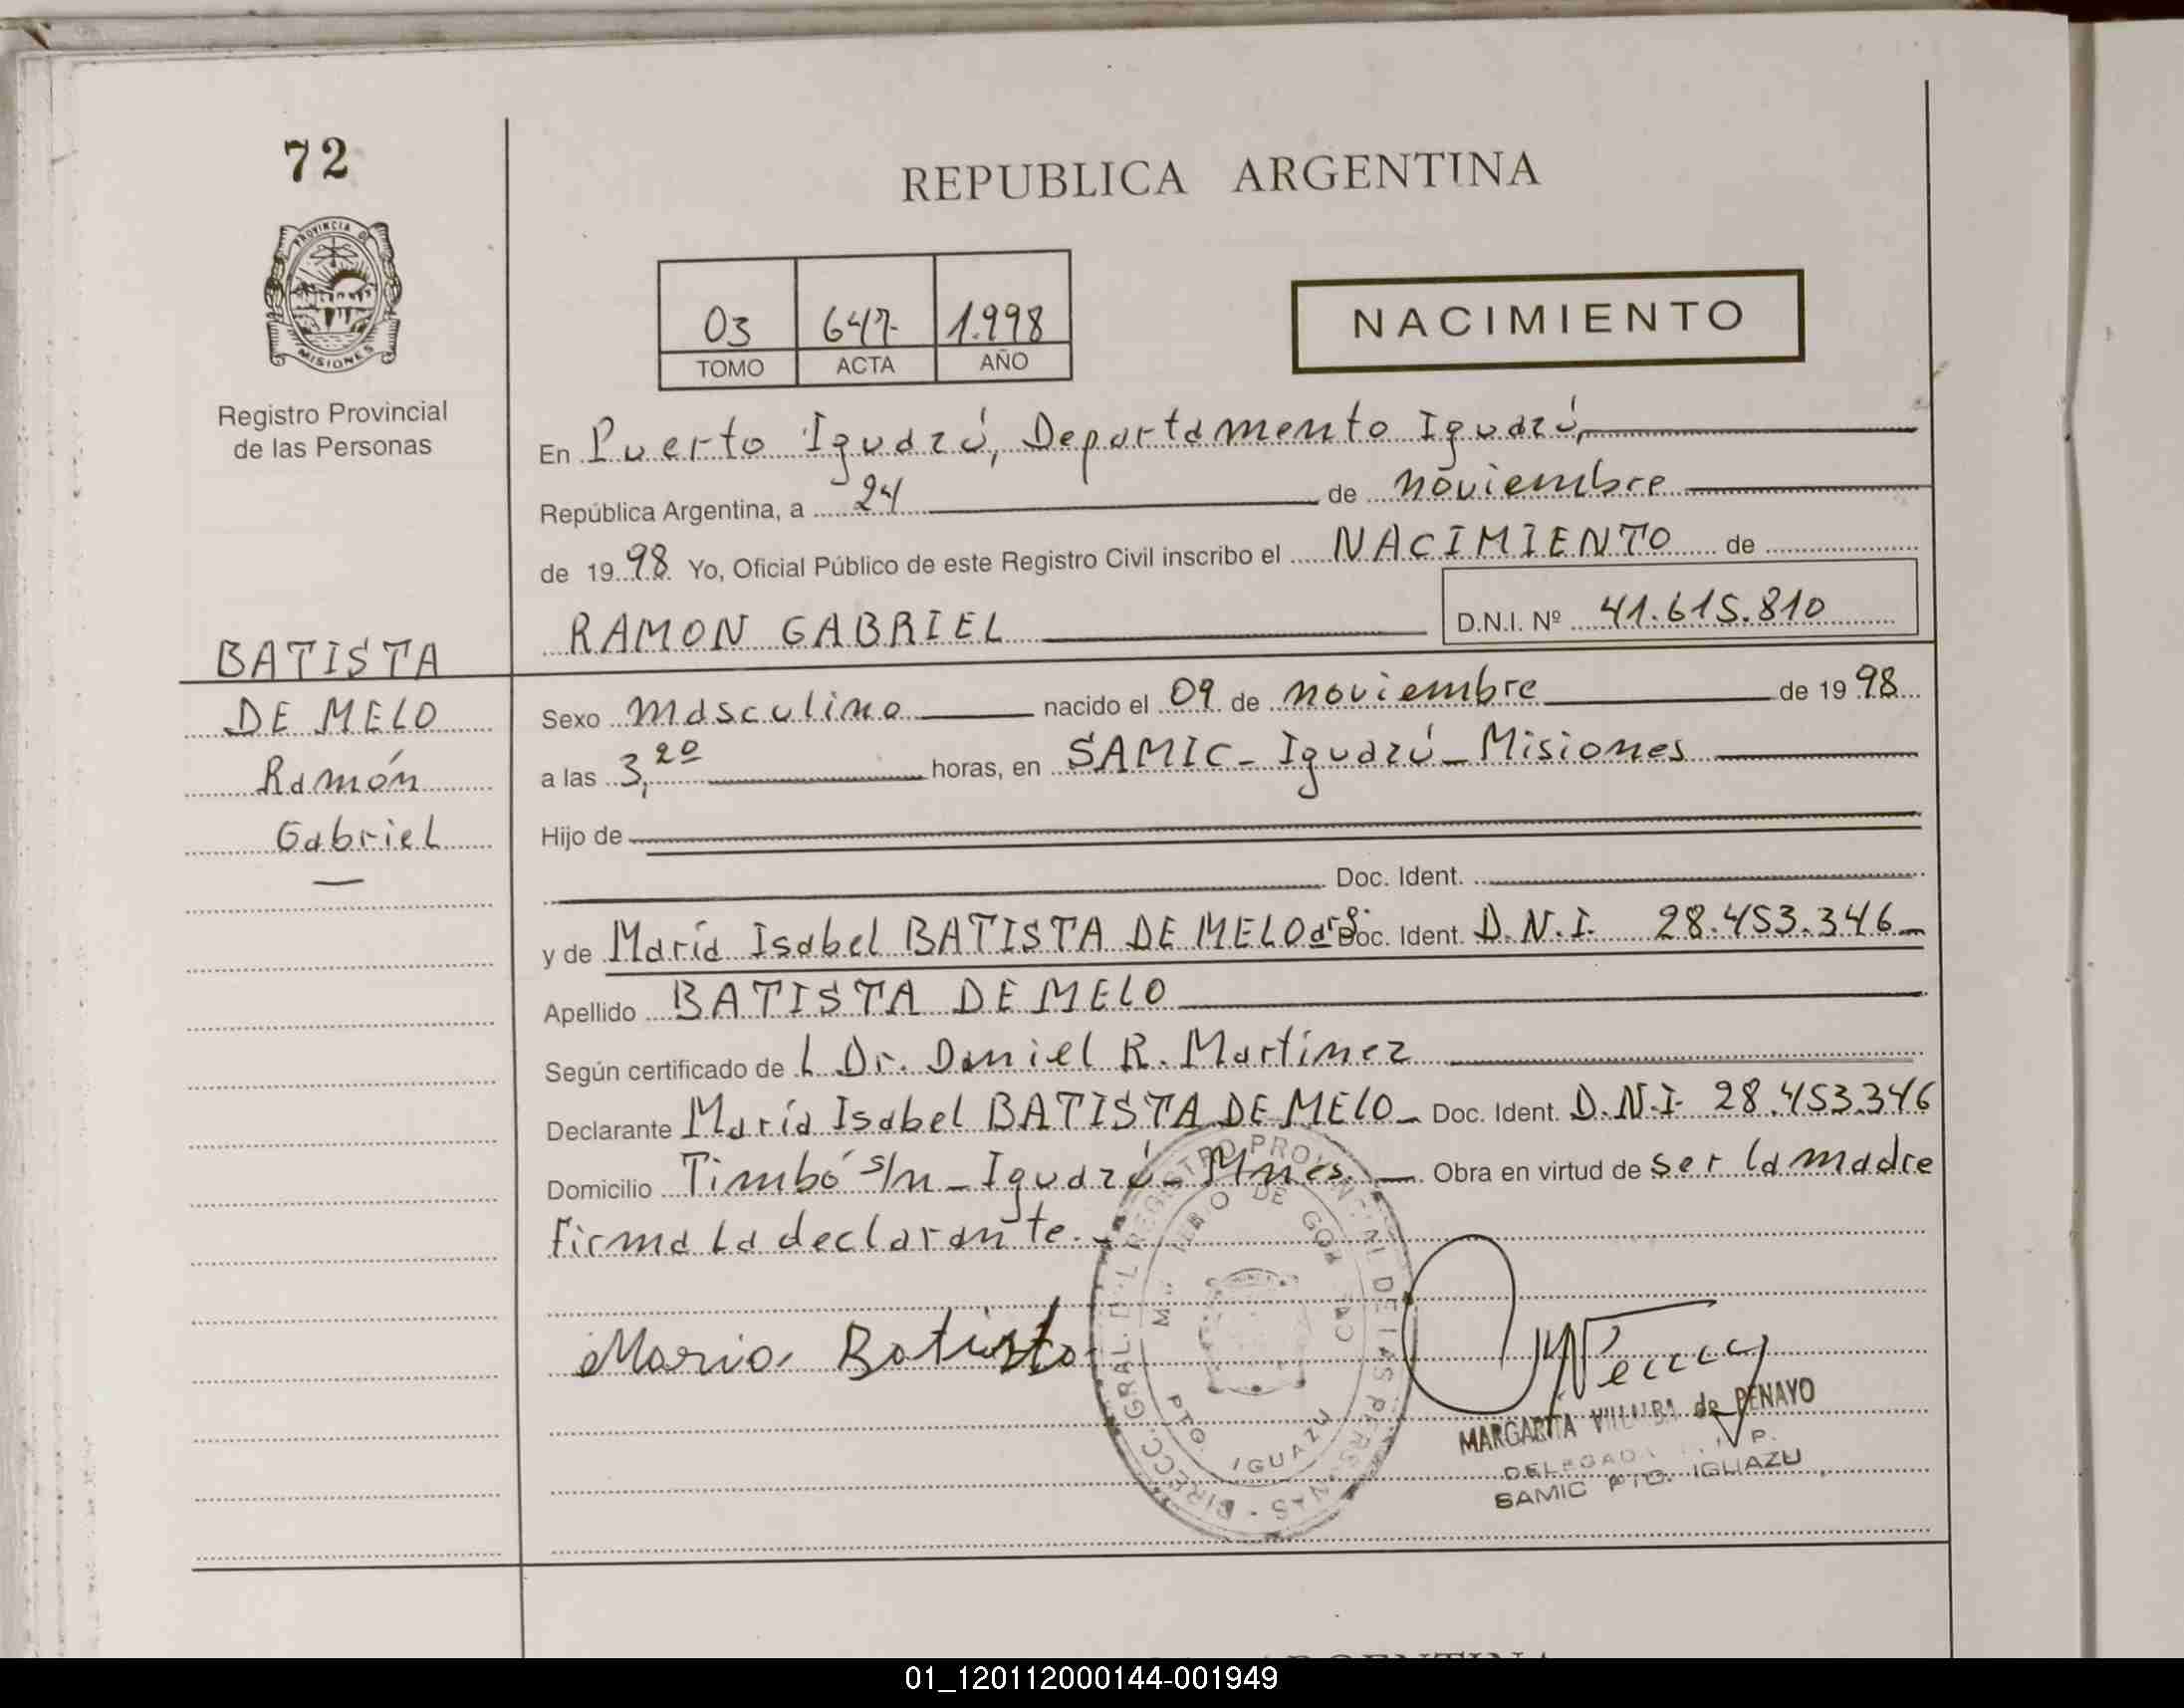 72
REPUBLICA ARGENTINA
PROVINCIA DE
MISIONES
Registro Provincial
de las Personas
03 647 1.998
TOMO ACTA AÑO
NACIMIENTO
En Puerto Iguazú, Departamento Iguazú,
República Argentina, a 24 de noviembre
de 1998 Yo, Oficial Público de este Registro Civil inscribo el NACIMIENTO de
RAMON GABRIEL D.N.I. Nº 41.615.810
BATISTA
DE MELO
Ramón
Gabriel
Sexo masculino nacido el 09 de noviembre de 1998
a las 3,20 horas, en SAMIC - Iguazú - Misiones
Hijo de
Doc. Ident.
y de María Isabel BATISTA DE MELO arg. Doc. Ident. D.N.I. 28.453.346
Apellido BATISTA DE MELO
Según certificado de L Dr. Daniel R. Martínez
Declarante María Isabel BATISTA DE MELO - Doc. Ident. D.N.I. 28.453.346
Domicilio Timbó s/n - Iguazú - Mnes. Obra en virtud de ser la madre
Firma la declarante. -
Maria Batista
DIRECC. GRAL. DEL REGISTRO PROVINCIAL DE LAS PERSONAS
PTO. IGUAZU
MARGARITA VILLALBA de PENAYO
SAMIC PTO. IGUAZU
01_120112000144-001949